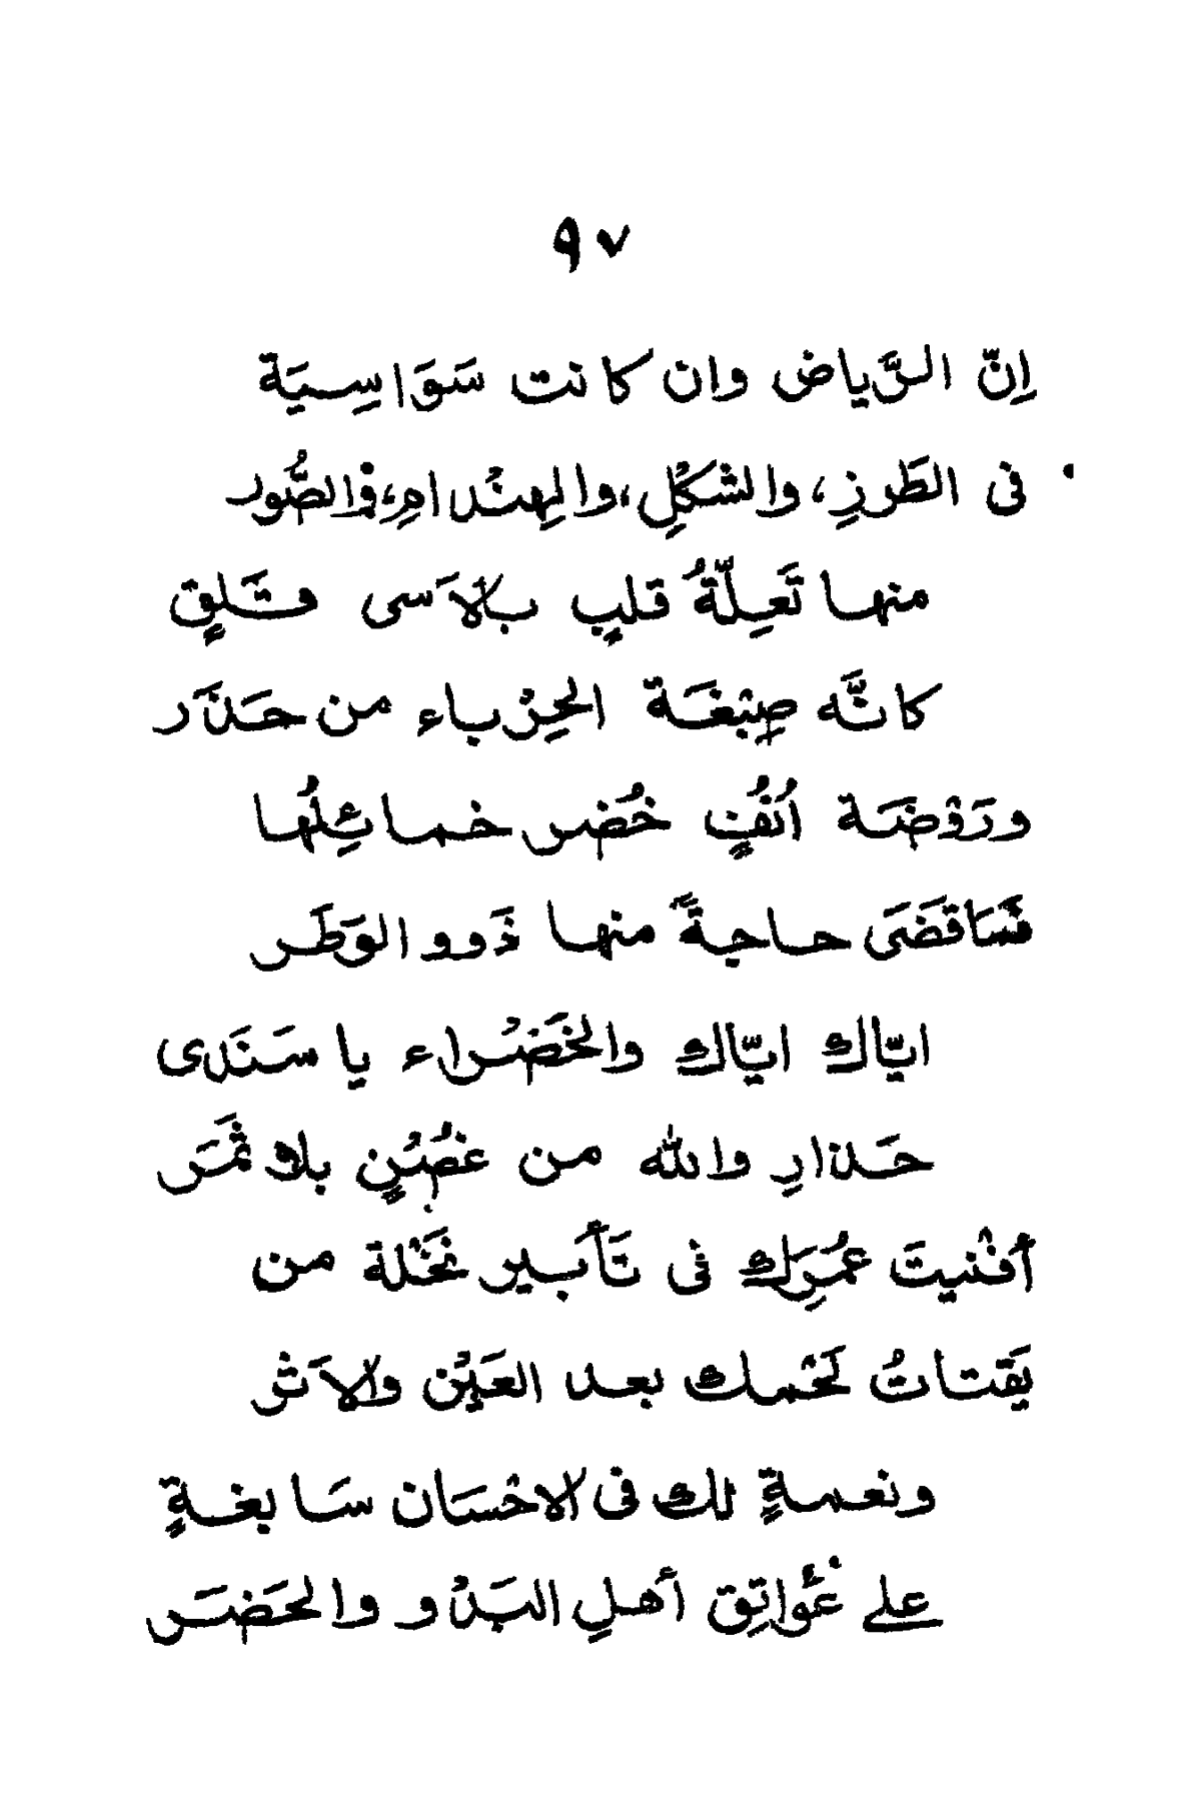 ٩٧
اِنّ الرَّياض وان كانت سَوَاسِيَة
فى الطَرزِ، والشَكْلِ، والهِنْدامِ، فى الصُّور
منها تَعِلّةُ قلبٍ بالاَسى قَلِقٍ
كانَّه صِبْغَة الحِرْباء من حَذَر
ورَوْضَة اُنُفٍ خُضر خمائِلُها
فَمَا قَضَى حاجةً منها ذَوو الوَطَر
ايّاك ايّاك والخَضْراء يا سَنَدى
حَذارِ والله من غصُنٍ بلا ثَمَر
أفْنيتَ عُمرَك فى تَأبير نَخْلة من
يَقتاتُ لَحْمك بعد العَيْن والاَثر
ونعمةٍ لك فى الاحْسَان سَابغةٍ
على عَواتِق أهلِ البَدْو والحَضَر